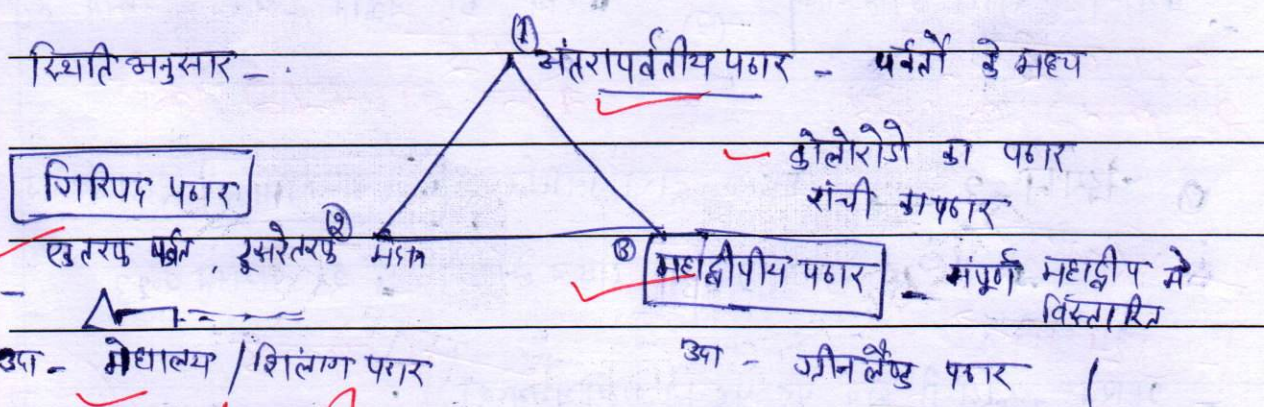 स्थिति अनुसार -
(1) अंतरापर्वतीय पठार - पर्वतों के मध्य
कोलोरोडो का पठार
रांची का पठार
गिरिपद पठार
(2) एक तरफ पर्वत, दूसरे तरफ मैदान
(3) महाद्वीपीय पठार - संपूर्ण महाद्वीप में
विस्तारित
उदा - मेघालय / शिलांग पठार
उदा - ग्रीनलैण्ड पठार